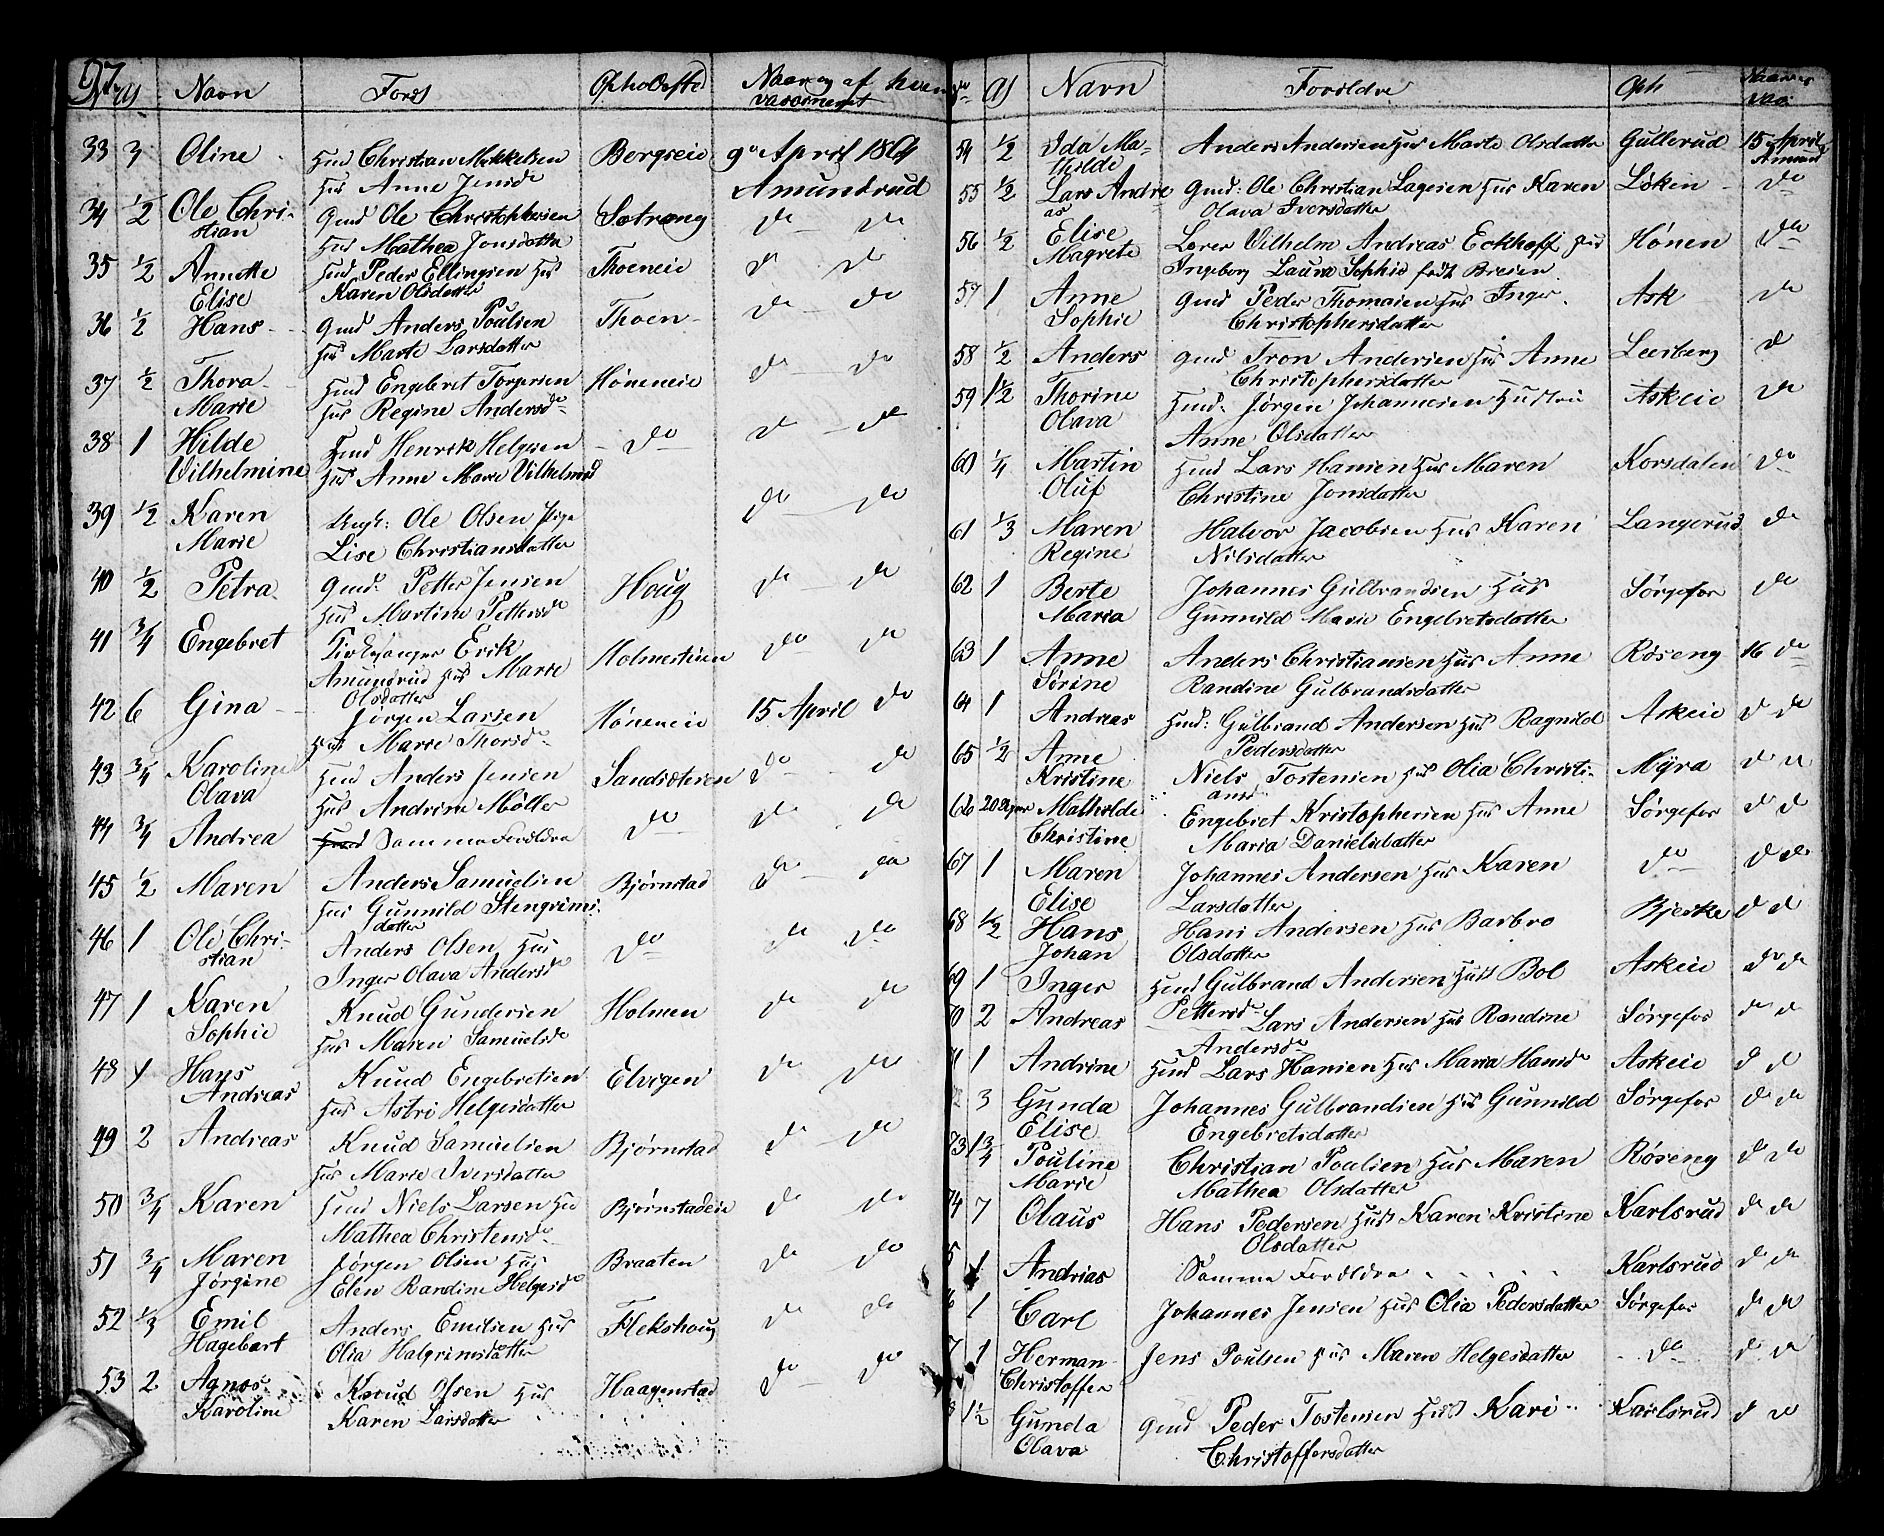 97.
Navn Forld Opholdsste Naar og af hvem vaccineret
33 3 Oline Husmd Christian Mikkelsen Borgseie 9de April 1861
Hus Anne Jensd Amundrud
34 ½ Ole Chri- Gmd Ole Christophersen Sætrang do do
stian Hus Mathea Jonsdatter
35 ½ Annette Husmd Peder Ellingsen Hus Thoeneie do do
Elise Karen Olsdatter
36 ½ Hans Gmd Anders Poulsen Thoen do do
Hus Marte Larsdatter
37 ½ Thora Husmd Engebret Torgersen Høneneie do do
Marie Hus Regine Andersd
38 1 Hilde Husmd Henrik Helgesen do do do
Vilhelmine Hus Anne Marie Vilhelmsd
39 ½ Karen Ungk: Ole Olsen Pige do do
Marie Lise Christiansdatter
40 ½ Petra Gmd: Petter Jensen Houg do do
Hus Martine Pettersd
41 ¾ Engebret Erik Holmesteien do do
Amundrud Hus Marie
Olsdatter
42 6 Gina Jørgen Larsen Høneneie 15 April do
Hus Marie Thorsd
43 ¾ Karoline Husmd Anders Jensen do do
Olava Hus Andrine Møller
44 ¾ Andrea Samma Foreldre do do do
45 ½ Maren Anders Samuelsen Bjørnstad do do
Hus Gunnild Stengrims-
datter
46 1 Ole Chri- Anders Olsen Hus do do do
stian Inger Olava Andersd
47 1 Karen Knud Gundersen Holmen do do
Sophie Hus Maren Samuelsd
48 1 Hans Knud Engebretsen Elvigen do do
Andreas Hus Astri Helgesdatter
49 2 Andreas Knud Samuelsen Bjørnstad do do
Hus Marie Iversdatter
50 ¾ Karen Husmd Niels Larsen Hu Bjørnstadeie do do
Mathea Christensd
51 ¾ Maren Jørgen Olsen Hus Braaten do do
Jørgine Elen Randine Helgesd
52 ⅓ Emil Anders Emilsen Hus Flekshoug do do
Hagebart Olia Halgrimsdatter
53 2 Agnes Knud Olsen Hus Haagenstad do do
Karoline Karen Larsdatter
No Al Navn Foreldre Oph Naar vac
54 ½ Ida Ma- Anders Andersen Hus Marte Olsdatter Gullerud 15 April
thilde Amund
55 ½ Lars Andre Gmd: Ole Christian Lagesen Hus Karen Løken do
as Olava Iversdatter
56 ½ Elise Lærer Vilhelm Andreas Eckhoff Hus Hønen do
Magrete Ingeborg Laura Sophie født Breien
57 1 Anne Gmd Peder Thomasen Hus Inger Ask do
Sophie Christophersdatter
58 ½ Anders Gmd Tron Andersen Hus Anne Leerberg do
Christophersdatter
59 1½ Thorine Husmd: Jørgen Johannesen Hustrue Askeie do
Olava Anne Olsdatter
60 ¼ Martin Husmd Lars Hansen Hus Maren Korsdalen do
Oluf Christine Jonsdatter
61 ⅓ Maren Halvor Jacobsen Hus Karen Langerud do
Regine Nilsdatter
62 1 Berte Johannes Gulbrandsen Hus Sørgefos do
Maria Gunnild Marie Engebretsdatter
63 1 Anne Anders Christiansen Hus Anne Røseng 16 do
Sørine Randine Gulbrandsdatter
64 1 Andreas Husmd: Gulbrand Andersen Hus Ragnild Askeie do do
Pedersdatter
65 ½ Anne Niels Tostensen Hus Olia Christi- Myra do do
Kristine ansd
66 20 Uger Mathilde Engebret Kristophersen Hus Anne Sørgefos do do
Christine Maria Danielsdatter
67 1 Maren Johannes Andersen Hus Karen do do do
Elise Larsdatter
68 ½ Hans Hans Andersen Hus Barbro Bjerke do do
Johan Olsdatter
69 1 Inger Husmd Gulbrand Andersen Hust Bol Askeie do do
Pettersd
0 2 Andreas Lars Andersen Hus Randine Sørgefos do do
Andersd
1 1 Andrine Husmd Lars Hansen Hus Maria Hansd Askeie do do
2 3 Gunda Johannes Gulbrandsen Hus Gunnild Sørgefos do do
Elise Engebretsdatter
73 1¾ Pouline Christian Poulsen Hus Maren Røseng do do
Marie Mathea Olsdatter
74 7 Olaus Hans Pedersen Hust Karen Kristine Karlsrud do do
Olsdatter
5 1 Andrias Samma Foreldre Karlsrud do do
6 1 Carl Johannes Jensen Hus Olia Pedersdatter Sørgefos do do
7 1 Herman Jens Poulsen Hus Maren Helgesdatter do do do
Christoffer
8 1½ Gunda Gmd Peder Tostensen Hust Kari Karlsrud do do
Olava Christoffersdatter